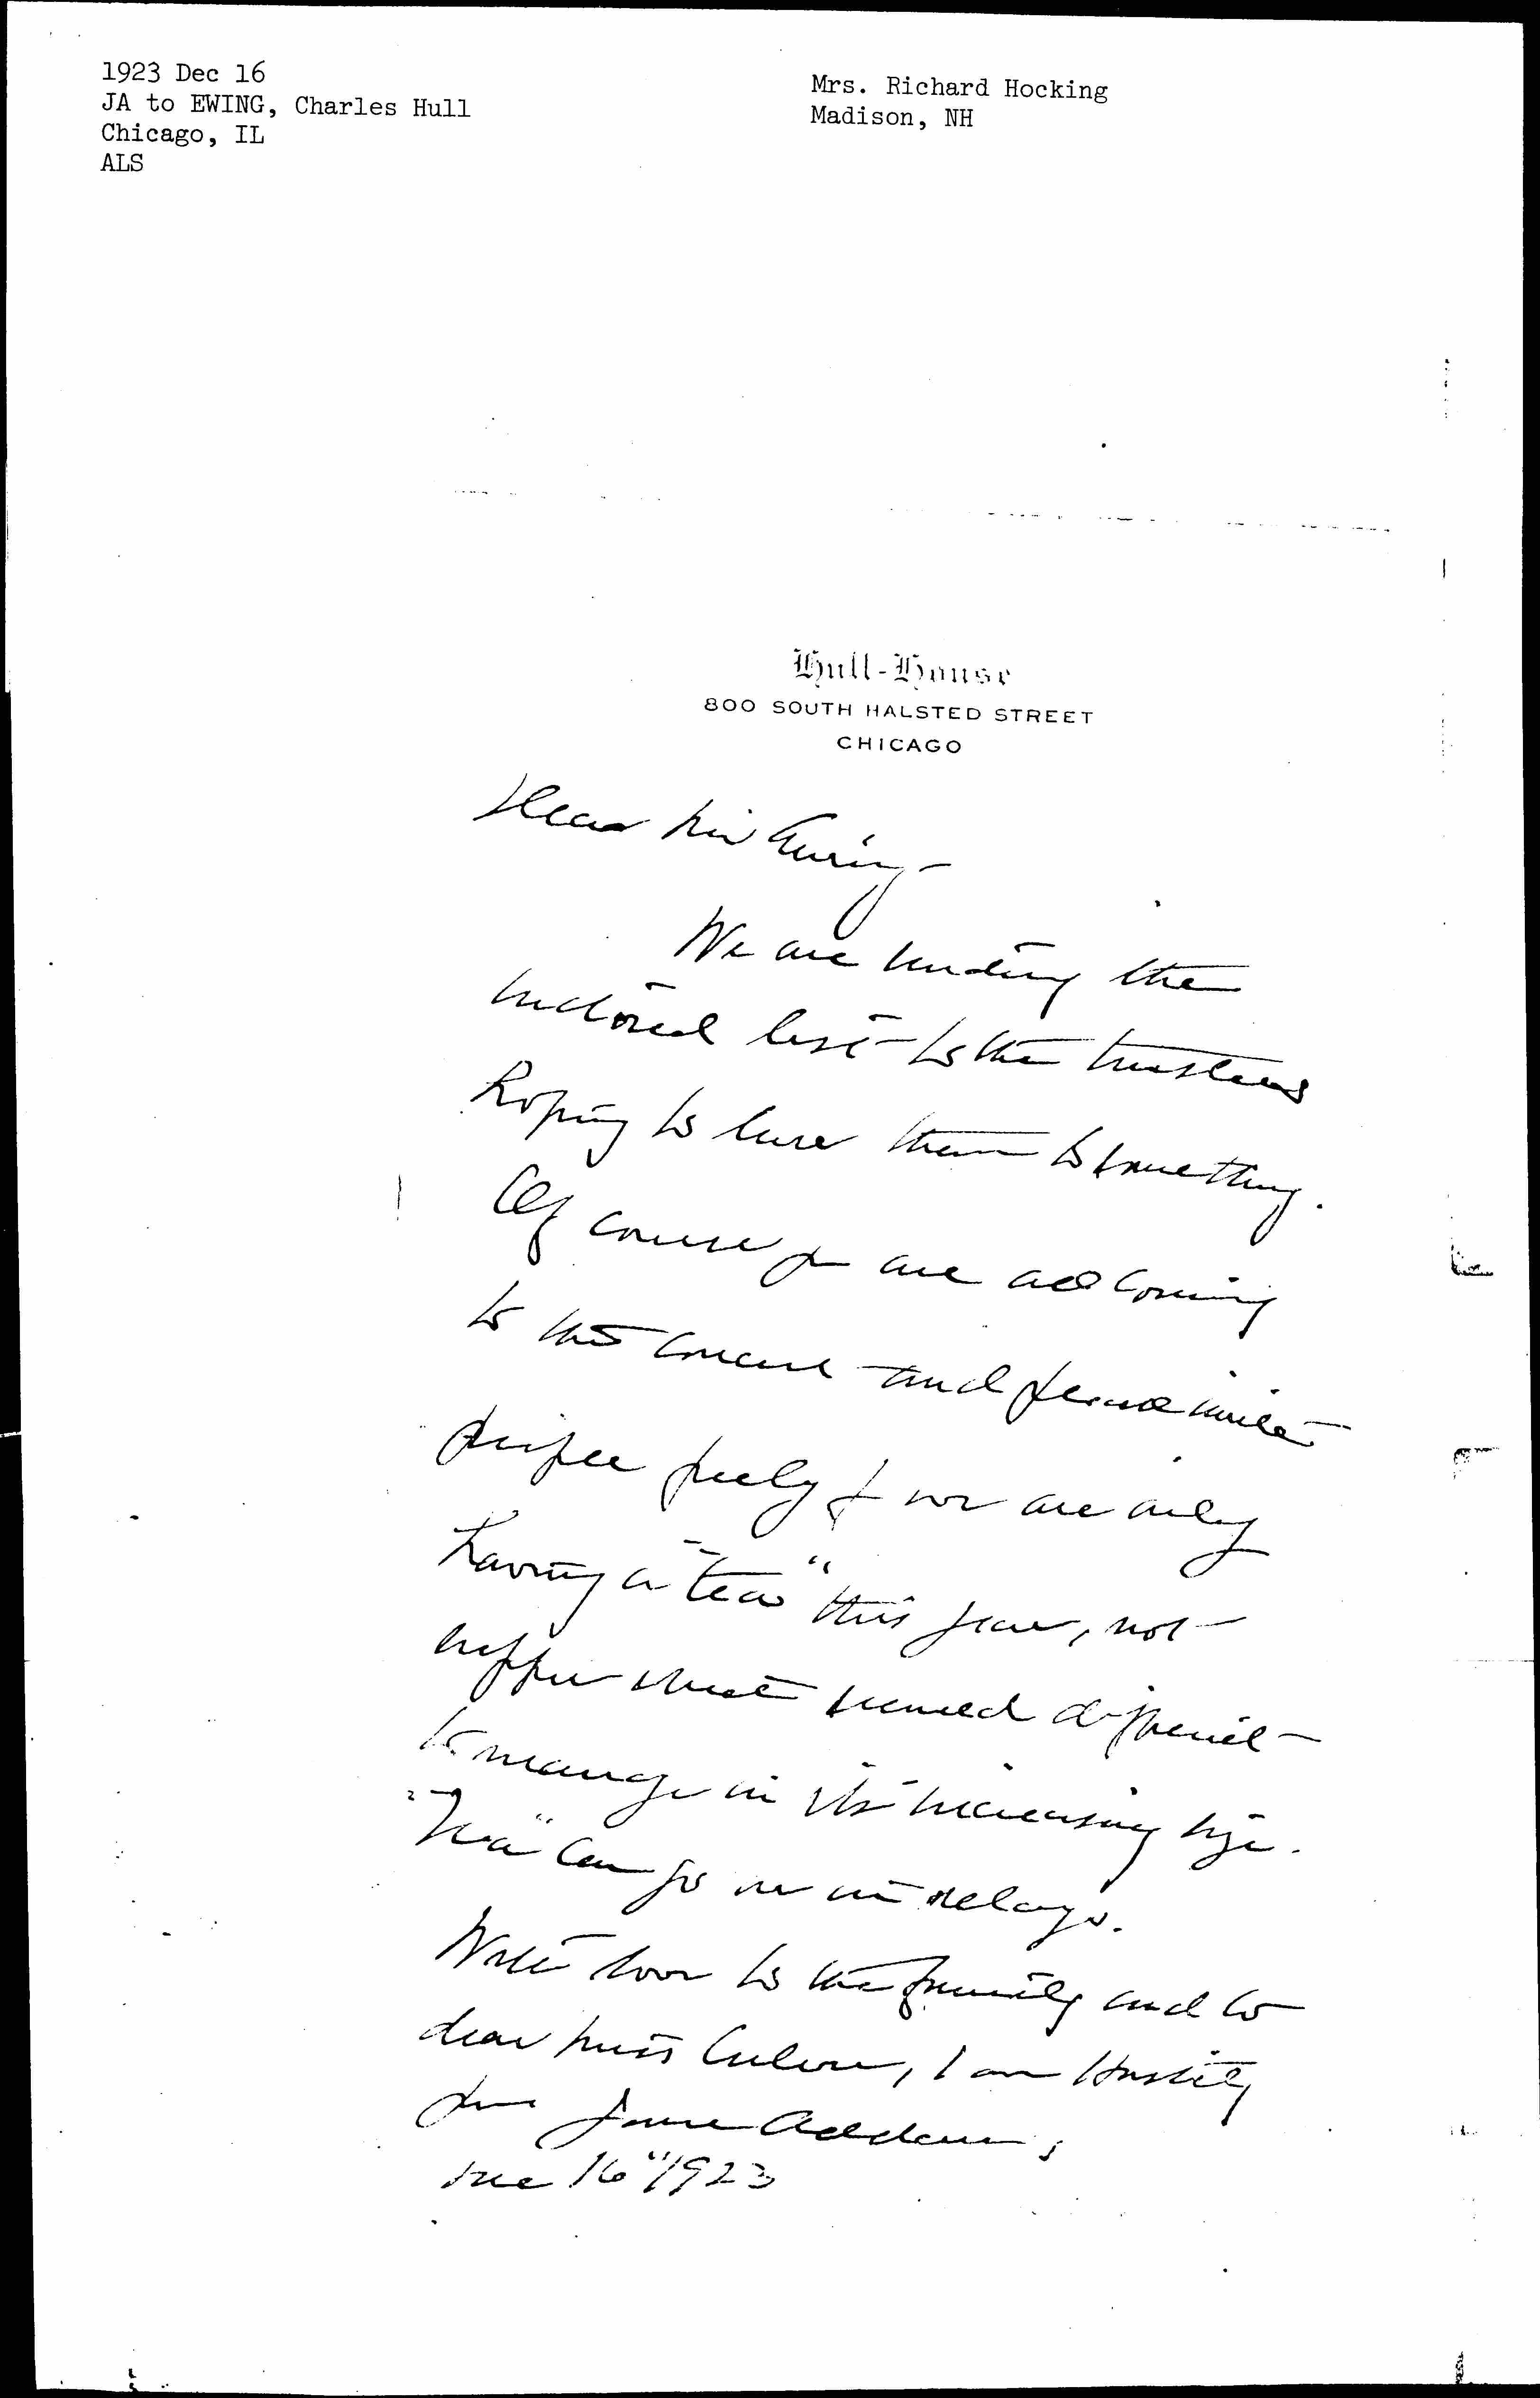 1923 Dec 16
JA to EWING, Charles Hull
Chicago, IL
ALS
Mrs. Richard Hocking
Madison, NH
Hull-House
800 SOUTH HALSTED STREET
CHICAGO
Dear Mr Ewing-
We are sending the
enclosed list to the trustees
hoping to lure them to something.
Of course you are all coming
to the concert and please invite
people freely & we are only
having a "tea" this year, not
supper that seemed difficult
to manage in its increasing size.
"Tea" can go on in relays.
With love to the family and to
dear Miss Culver, I am hastily
yrs Jane Addams
Dec 16" 1923